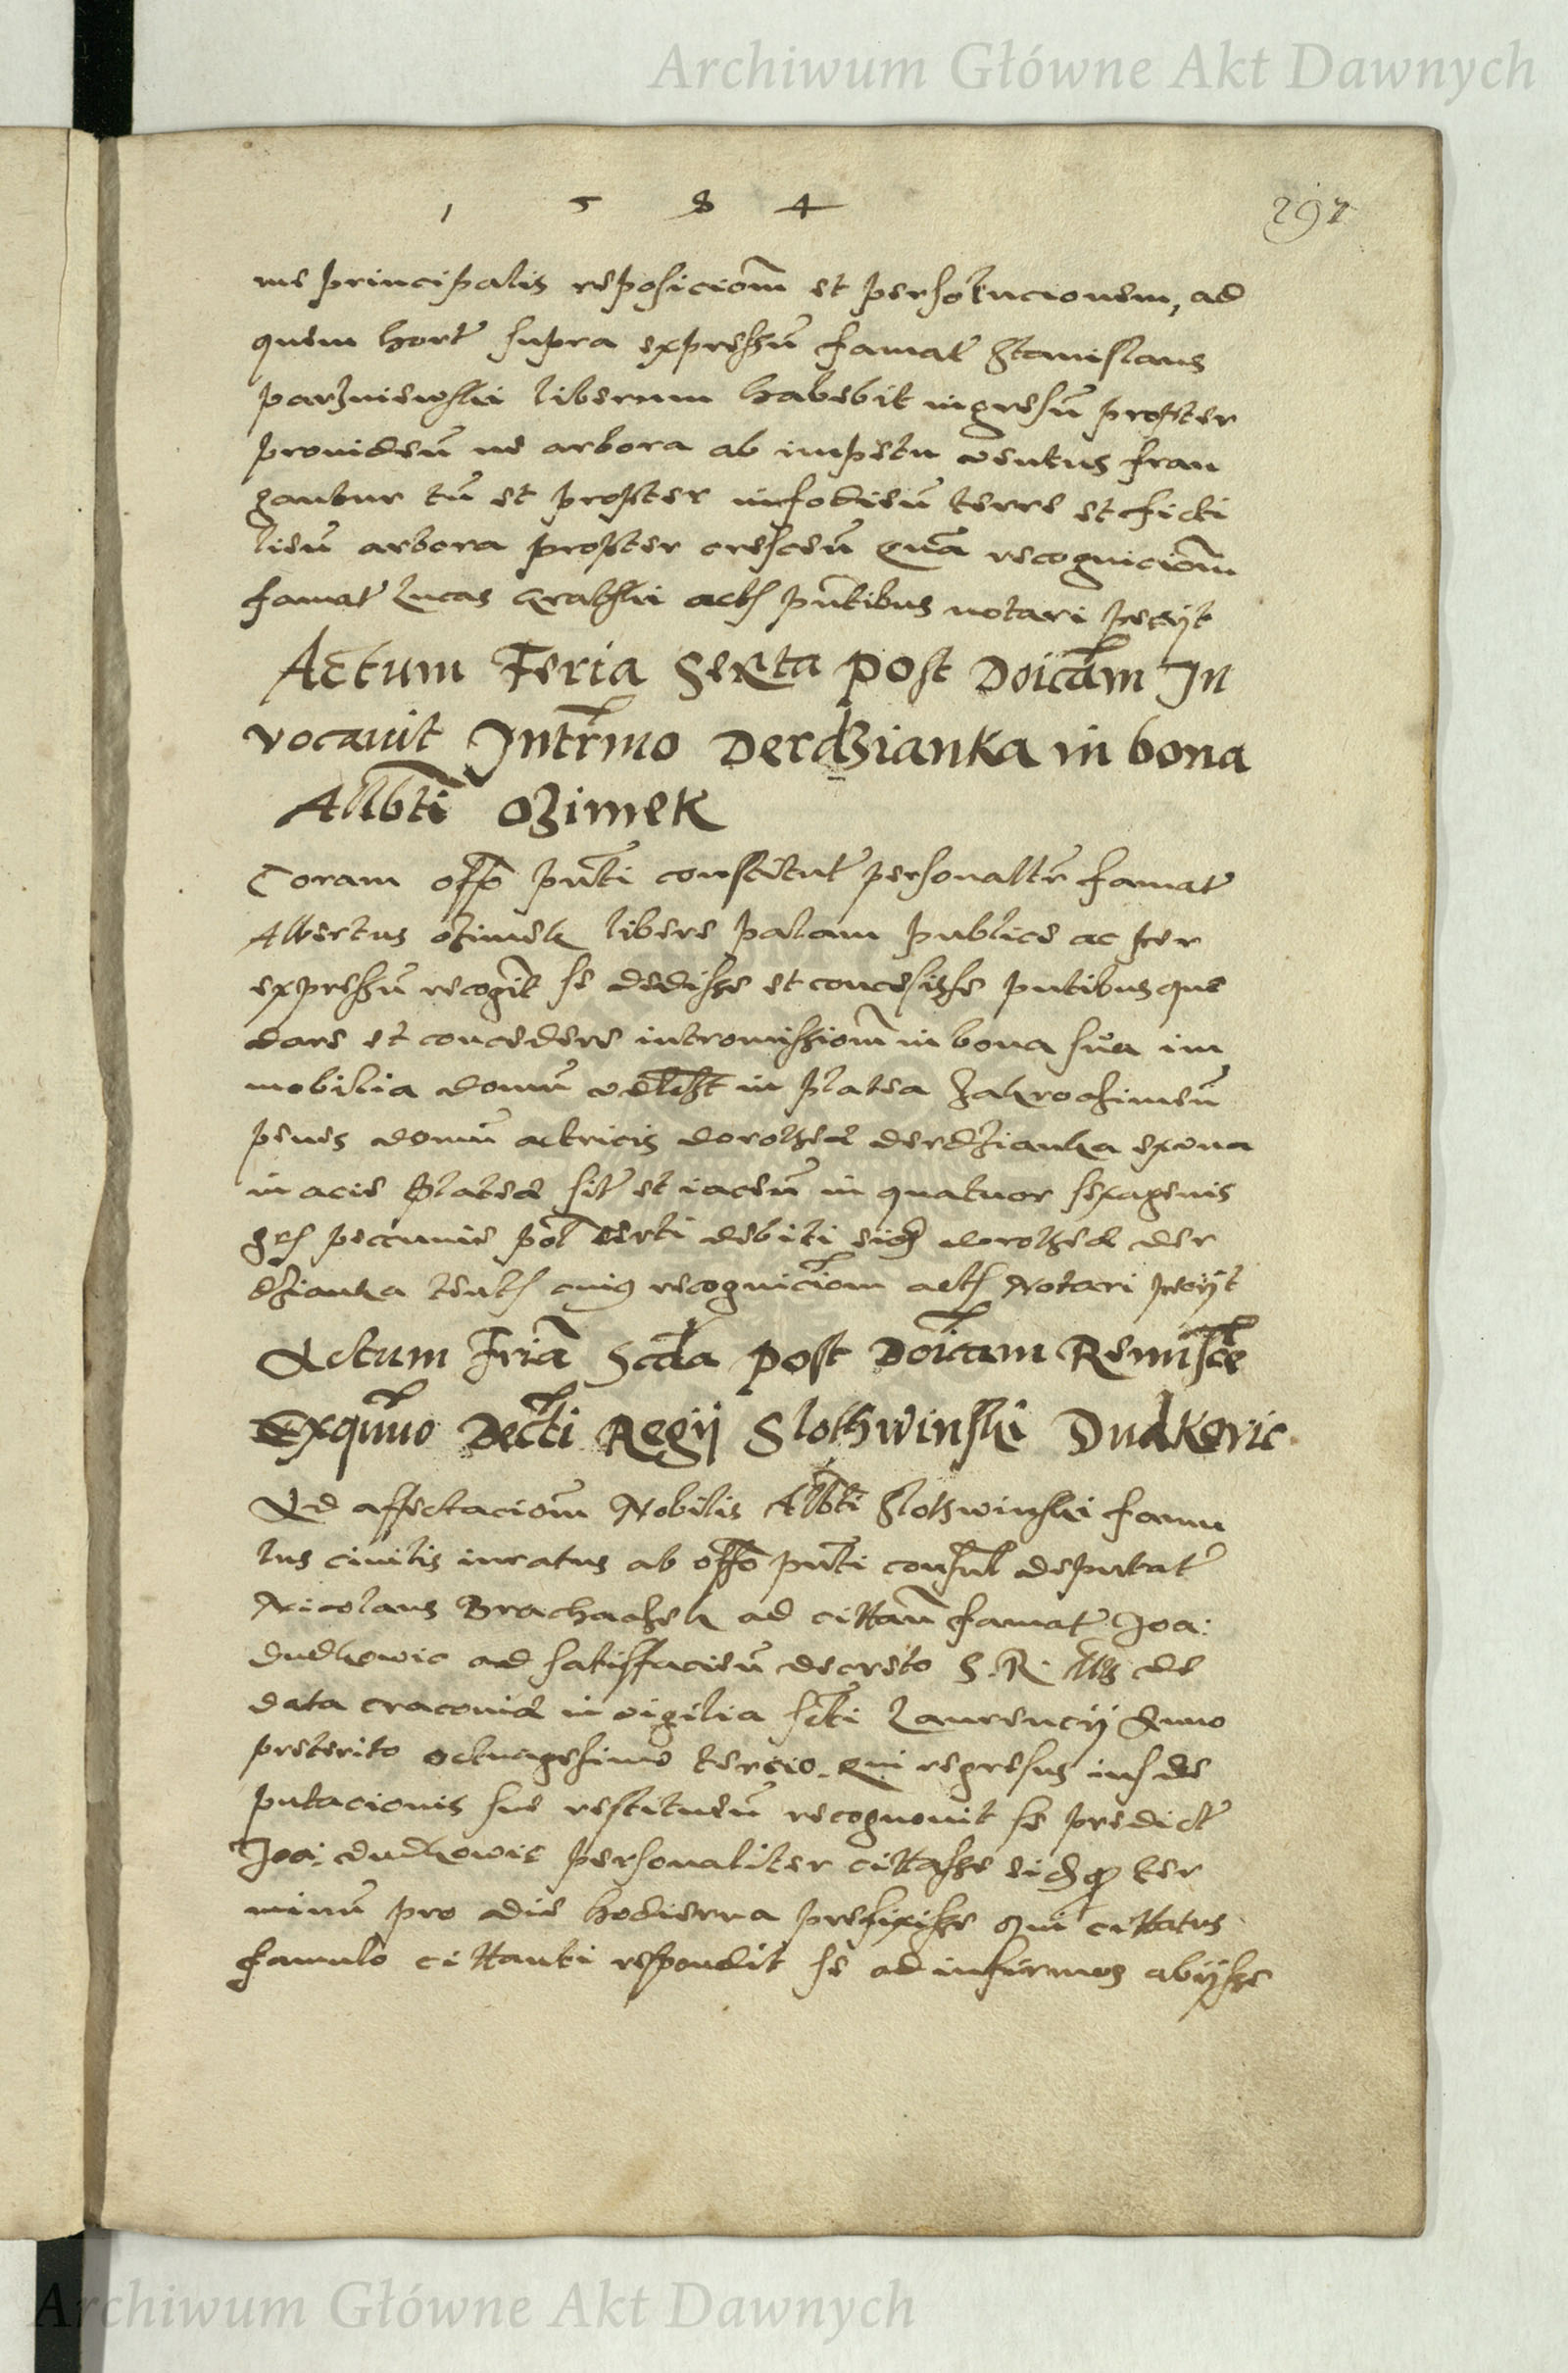 Archiwum Główne Akt Dawnych
1 5 8 4
297
me principalis reposiciom et persolucionem, ad
quem hort supra expressu famat Stanislaus
parzniewski liberum habebit ingresu propter
prouideu ne arbora ab impetu ventus fran
gantur tu et propter infodieu terre et ficti
lieu arbora propter cresceu Qua recogniciom
famat Lucas acts pntibus notari petijt
Actum Feria Sexta post Doicam In
vocauit Intrmo Derdzianka in bona
Allbti Ozimek
Coram offo pnti constitut personaltr famat
Albertus ozimek libere palam publice ac per
expressu recognit se dedisse et concesisse pntibusque
dare et concedere intromissiom in bona sua im
mobilia domu in platea Zakrocimeu
penes domu actricis dorothea derdzianka exuna
in acie platea sit et iaceu in quatuor sexagenis
grs peccunie pol certi debiti eid dorothea der
dzianka tents cuius recogniciom acts Notari petijt
Actum Fria Scda post Doicam Reminsce
Exqmuo Decti Regij Slothwinski Dudkovic
Ad affectaciom Nobilis Albti Slothwinski famu
lus ciuilis iuratus ab offo pnti consul deputat
Nicolaus Brachaczek ad cittan famat Joa:
dudkowic ad satisffacieu decreto S. R. Mtis de
data cracouia in vigilia scti Laurencij Anno
preterito octuagesimo tercio. Qui regresus ius de
putacionis sue restitueu recognouit se predict
Joa: dudkowic personaliter cittasse eidq ter
minu pro die hodierna prefixisse Qui cittatus
famulo cittanti respondit se ad infirmos abijsse
Archiwum Główne Akt Dawnych